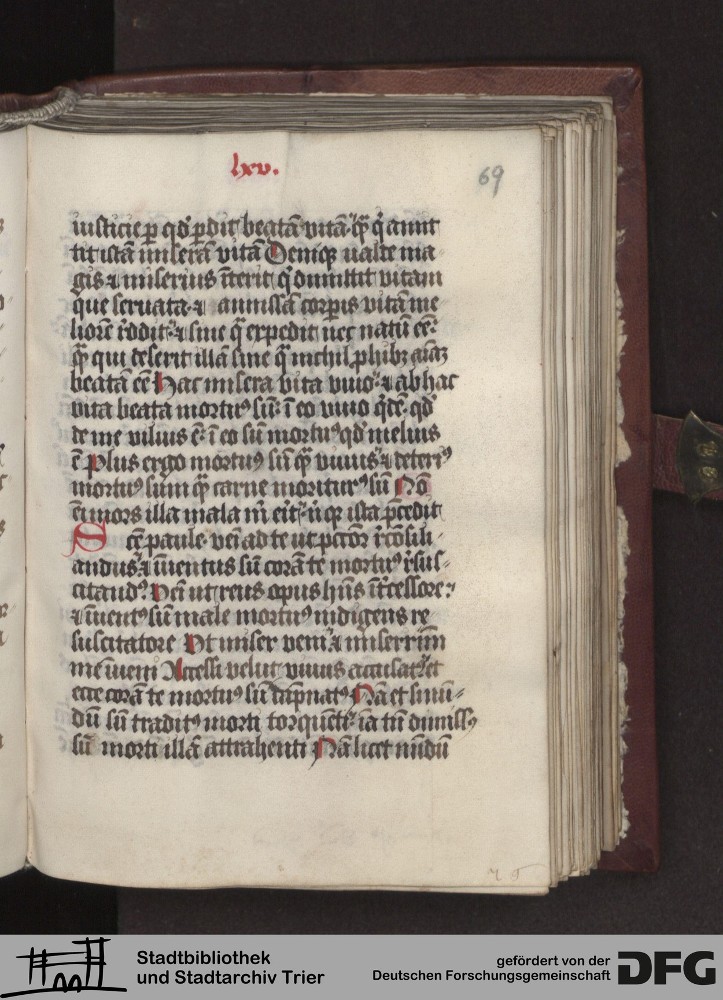 lxv.
69
iusticie ꝑ qd̕ ꝑdit beatā vitā· qͣꝫ q̕ amit
tit istā miserā vitā Deniqꝫ ualde ma
gis ⁊ miserius īterit q̕ dimittit vitam
que seruata ⁊ amissa corꝑis vitā me
liorē r̄ddit· ⁊ sine q̄ expedit nec natū eē·
qͣꝫ qui deserit illā sine q̄ nichil ꝓhibꝫ aīaꝫ
beatā eē Hac misera vita viuo· ⁊ ab hac
vita beata mortuꝰ sū· ī eo viuo q̕dē· qd̕
de me vilius ē· ī eo sū mortuꝰ qd̕ melius
ē Plus ergo mortuꝰ sū qͣꝫ viuus· ⁊ deteriꝰ
mortuꝰ sum qͣꝫ carne moriturꝰ sū Nō
eī mors illa mala m̄ eīt· n̄ qꝫ ista p̄cedit
Scē paule· veī ad te ut pctōr r̄cōsili-
andus· ⁊ īuentus sū corā te mortuꝰ r̄sus-
citandꝰ· Veī ut reus opus hn̄s īt̄cessore·
⁊ īuentꝰ sū male mortuꝰ indigens re
suscitatore Vt miser veni· ⁊ miserrim̄
me īueni Accessi velut viuus accusatꝰ· et
ecce corā te mortuꝰ sū dāpnatꝰ Nā et si nō-
dū sū traditꝰ morti torquēti· iā tn̄ dimissꝰ
sū morti illā attrahenti Nā licet nūdū
Stadtbibliothek
und Stadtarchiv Trier
gefördert von der
Deutschen Forschungsgemeinschaft
DFG